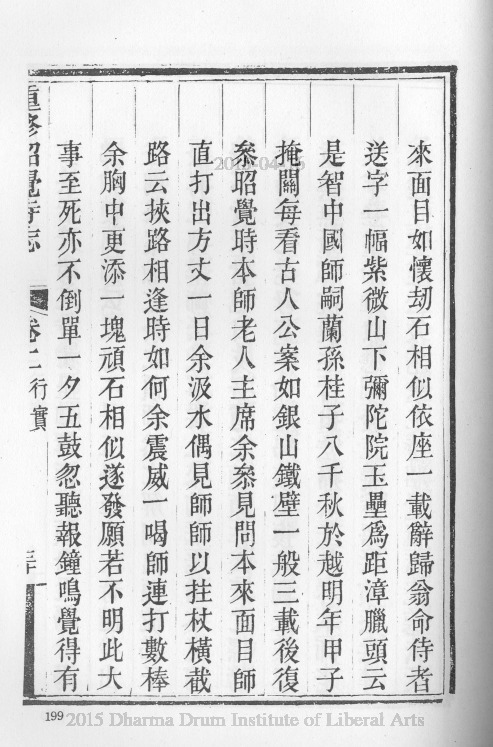 來面目如懷刧石相似依座一載辭歸翁命侍者
送字一幅紫微山下彌陀院玉壘為距漳臘頭云
是智中國師嗣蘭孫桂子八千秋於越明年甲子
掩關每看古人公案如銀山鐵壁一般三載後復
叅昭覺時本師老人主席余叅見問本來面目師
直打出方丈一日余汲水偶見師師以拄杖橫截
路云挾路相逢時如何余震威一喝師連打數棒
余胸中更添一塊頑石相似遂發願若不明此大
事至死亦不倒單一夕五鼓忽聽報鐘鳴覺得有
重修昭覺寺志 卷二 行實
199
2015 Dharma Drum Institute of Liberal Arts